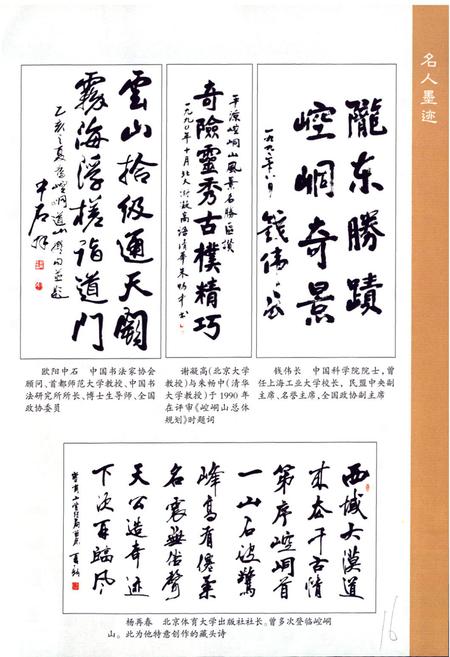 名人墨迹
陇东勝蹟
崆峒奇景
一九九二年八月
钱伟长
平凉崆峒山風景名勝區讃
奇險靈秀古樸精巧
一九九〇年十月北大謝凝高語清華朱畅中书
雲山拾级通天闕
霧海浮槎詣道門
乙亥之夏登崆峒道山
中石
钱伟长　中国科学院院士,曾
任上海工业大学校长, 民盟中央副
主席、名誉主席,全国政协副主席
谢凝高(北京大学
教授)与朱畅中(清华
大学教授)于1990年
在评审《崆峒山总体
规划》时题词
欧阳中石　中国书法家协会
顾问、首都师范大学教授、中国书
法研究所所长、博士生导师、全国
政协委员
西域大漠道
第序崆峒首
一山石破驚
名震無俗聲
天公造奇迹
下次再臨风
杨再春　北京体育大学出版社社长。曾多次登临崆峒
山。此为他特意创作的藏头诗
16